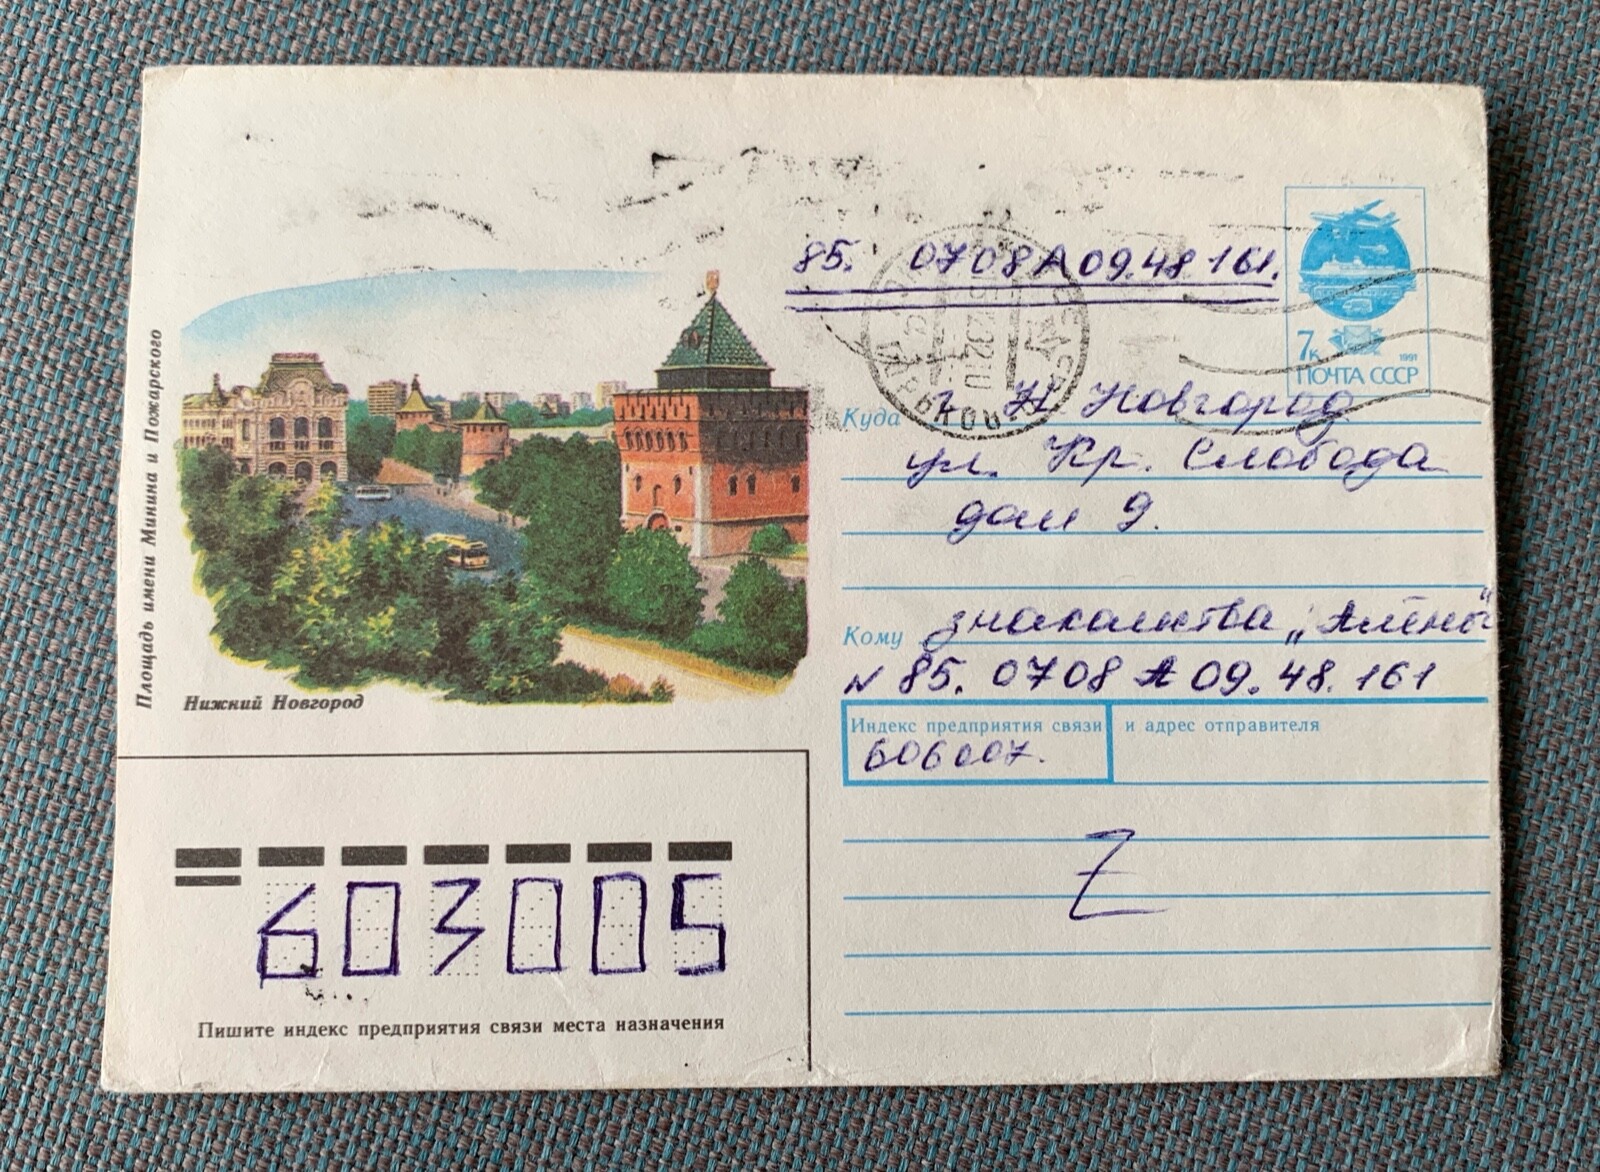 85. 0708А09.48 161.
7к
1991
ПОЧТА СССР
Площадь имени Минина и Пожарского
Нижний Новгород
Куда г. Н Новгород
ул. Кр. Слобода
дом 9.
Кому знакомства „Алёны"
N 85. 0708 А 09. 48. 161
Индекс предприятия связи и адрес отправителя
606007.
Z
603005
Пишите индекс предприятия связи места назначения